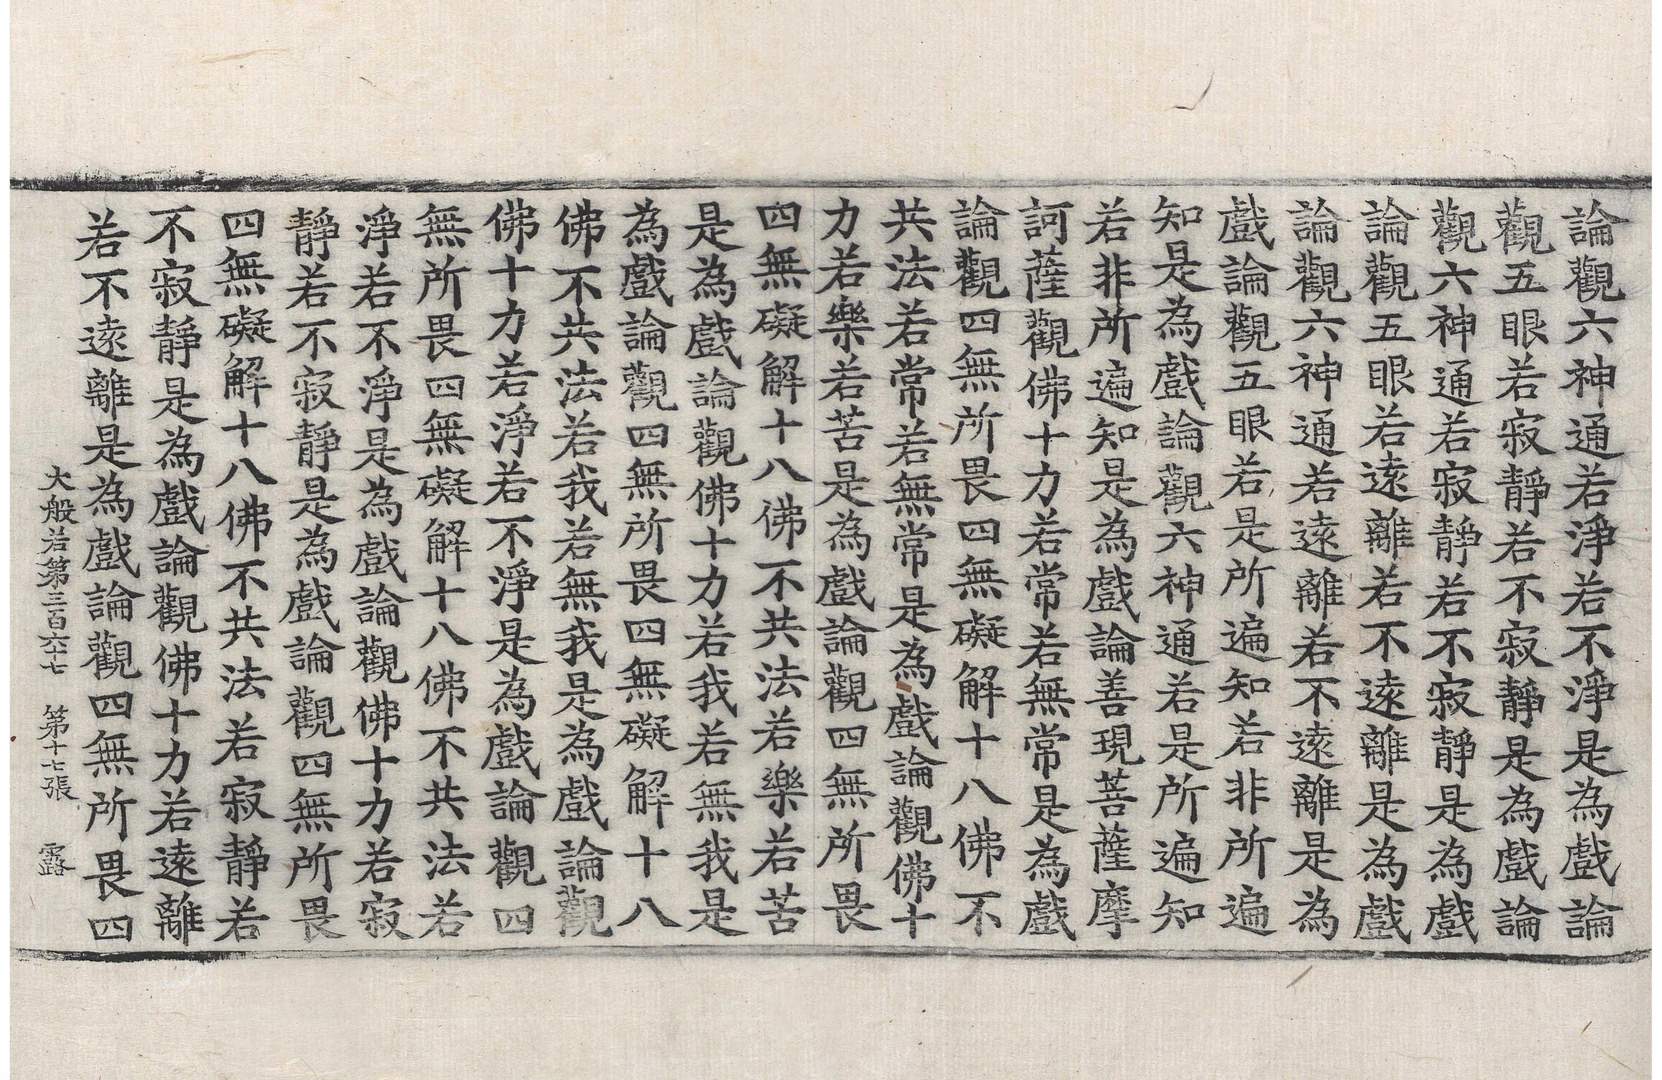 論觀六神通若淨若不淨是為戲論
觀五眼若寂靜若不寂靜是為戲論
觀六神通若寂靜若不寂靜是為戲
論觀五眼若遠離若不遠離是為戲
論觀六神通若遠離若不遠離是為
戲論觀五眼若是所遍知若非所遍
知是為戲論觀六神通若是所遍知
若非所遍知是為戲論善現菩薩摩
訶薩觀佛十力若常若無常是為戲
論觀四無所畏四無礙解十八佛不
共法若常若無常是為戲論觀佛十
力若樂若苦是為戲論觀四無所畏
四無礙解十八佛不共法若樂若苦
是為戲論觀佛十力若我若無我是
為戲論觀四無所畏四無礙解十八
佛不共法若我若無我是為戲論觀
佛十力若淨若不淨是為戲論觀四
無所畏四無礙解十八佛不共法若
淨若不淨是為戲論觀佛十力若寂
靜若不寂靜是為戲論觀四無所畏
四無礙解十八佛不共法若寂靜若
不寂靜是為戲論觀佛十力若遠離
若不遠離是為戲論觀四無所畏四
大般若第三百六十七 第十七張 露